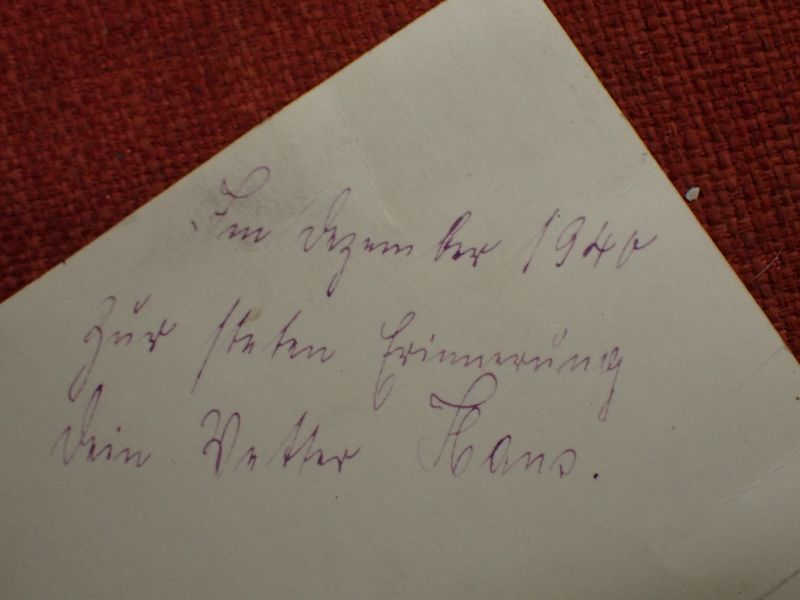 Im Dezember 1940
Zur steten Erinnerung
Dein Vetter Hans.